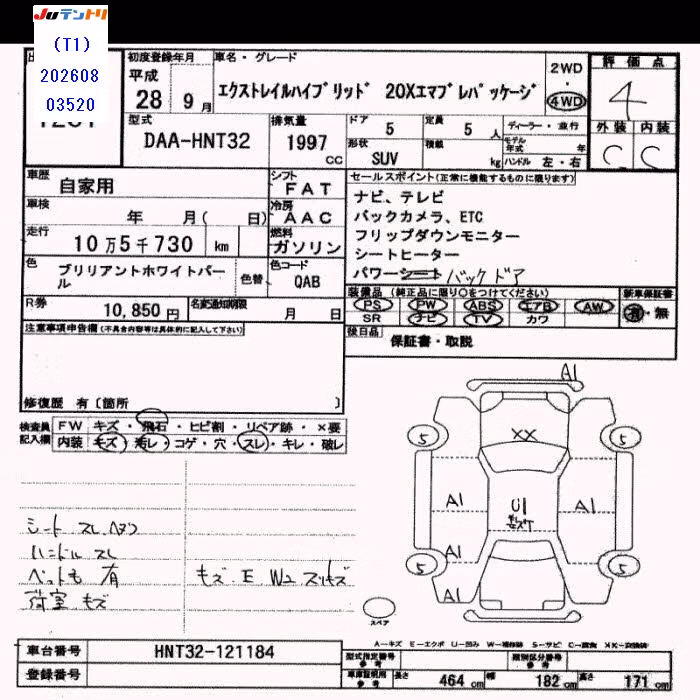 JUテントリ
(T1)
202608
03520
初度登録年月
平成
28 9月
車名・グレード
エクストレイルハイブリッド 20Xエマブレパッケージ
2WD
4WD
評価点
4
外装 内装
C C
型式
DAA-HNT32
排気量
1997
CC
ドア
5
定員
5 人
形状
SUV
積載
kg
ディーラー・並行
モデル年式 年
ハンドル 左・右
車歴
自家用
シフト
FAT
車検
年 月( 日)
冷房
AAC
走行
10万5千730 km
燃料
ガソリン
色
ブリリアントホワイトパール
色替
色コード
QAB
R券
10,850 円
名変通知期限
月 日
セールスポイント(正常に機能するものに限ります)
ナビ、テレビ
バックカメラ、ETC
フリップダウンモニター
シートヒーター
パワーシート バックドア
装備品 (純正品に限り○をつけてください)
PS PW ABS エアB AW
SR ナビ TV カワ
新車保証書
有・無
後日品
保証書・取説
注意事項申告欄(不具合内容等は具体的に記入して下さい)
修復歴 有〔箇所 〕
検査員
記入欄
FW キズ・飛石・ヒビ割・リペア跡・×要
内装 キズ・汚レ・コゲ・穴・スレ・キレ・破レ
シート スレ
ハンドル スレ
ペット毛 有
荷室 キズ
キズ E W2 スリキズ
A1
5
XX
5
A1
U1
A1
A1
5
5
A1
スペア
A-キズ E-エクボ U-凹み W-補修跡 S-サビ C-腐食 XX-交換済
車台番号
HNT32-121184
登録番号
型式指定番号
参考
類別区分番号
参考
車庫証明用
参考
長さ 464 cm
幅 182 cm
高さ 171 cm